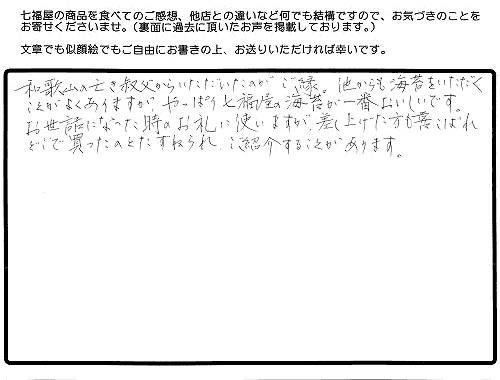 七福屋の商品を食べてのご感想、他店との違いなど何でも結構ですので、お気づきのことを
お寄せくださいませ。(裏面に過去に頂いたお声を掲載しております。)
文章でも似顔絵でもご自由にお書きの上、お送りいただければ幸いです。
和歌山の亡き叔父からいただいたのがご縁。他からも海苔をいただく
ことがよくありますが、やっぱり七福屋の海苔が一番おいしいです。
お世話になった時のお礼に使いますが、差し上げた方も喜ばれ
どこで買ったのとたずねられ、ご紹介することがあります。